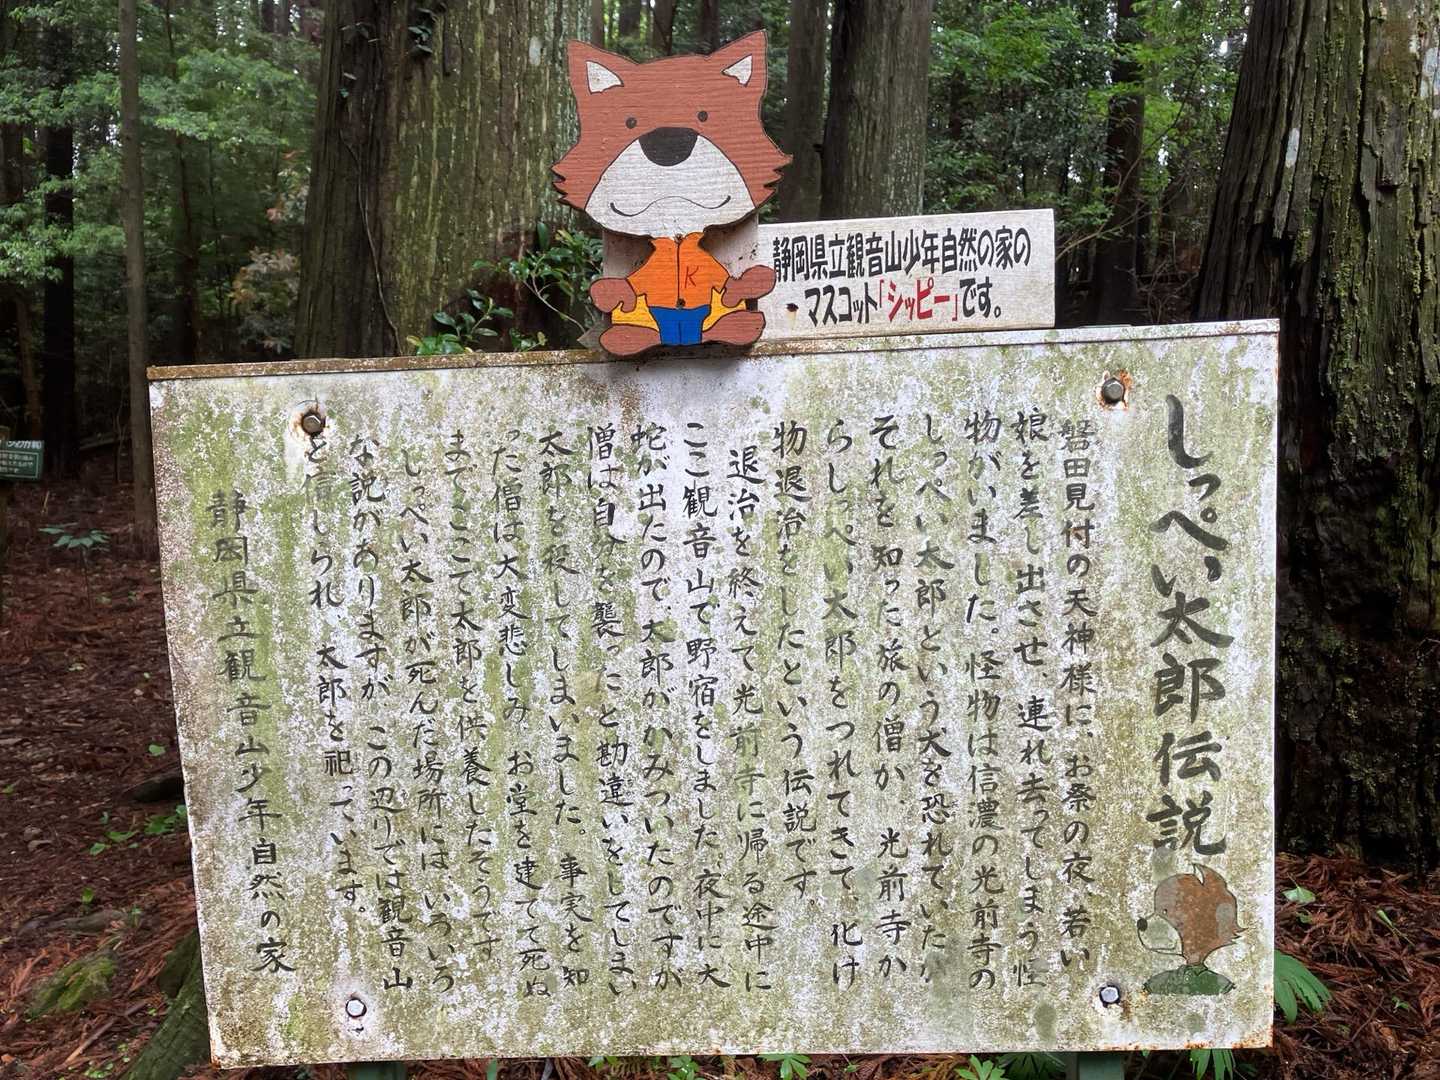 静岡県立観音山少年自然の家の
マスコット「シッピー」です。
しっぺい太郎伝説
磐田見付の天神様に、お祭の夜、若い
娘を差し出させ、連れ去ってしまう怪
物がいました。怪物は信濃の光前寺の
しっぺい太郎という犬を恐れていたが
それを知った旅の僧が、光前寺か
らしっぺい太郎をつれてきて、化け
物退治をしたという伝説です。
退治を終えて光前寺に帰る途中に
ここ観音山で野宿をしました。夜中に大
蛇が出たので、太郎がかみついたのですが
僧は自分を襲ったと勘違いをしてしまい
太郎を殺してしまいました。事実を知
った僧は大変悲しみ、お堂を建てて死ぬ
までここで太郎を供養したそうです。
しっぺい太郎が死んだ場所には、いろいろ
な説がありますが、この辺りでは観音山
と信じられ、太郎を祀っています。
静岡県立観音山少年自然の家
K